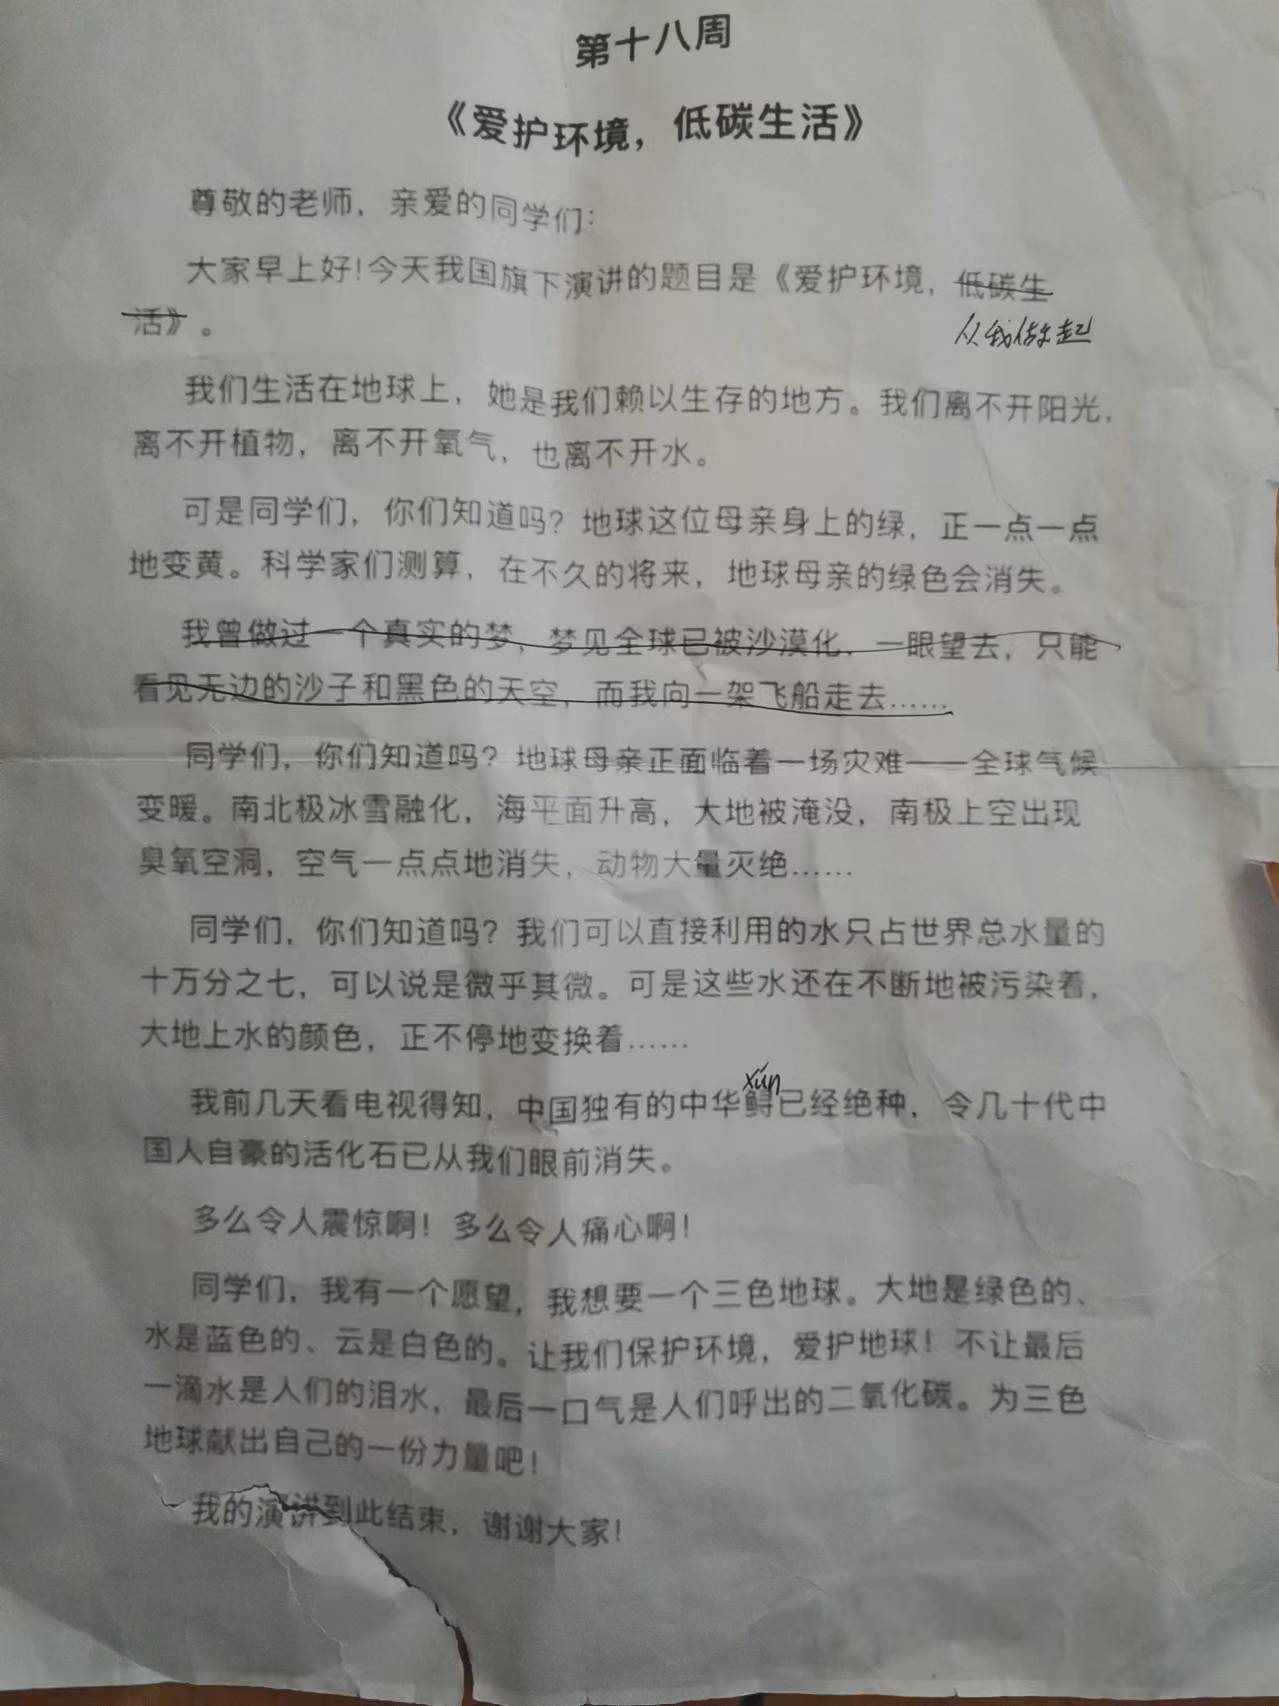 第十八周
《爱护环境，低碳生活》
尊敬的老师，亲爱的同学们：
大家早上好！今天我国旗下演讲的题目是《爱护环境，低碳生
活》。
从我做起
我们生活在地球上，她是我们赖以生存的地方。我们离不开阳光，
离不开植物，离不开氧气，也离不开水。
可是同学们，你们知道吗？地球这位母亲身上的绿，正一点一点
地变黄。科学家们测算，在不久的将来，地球母亲的绿色会消失。
我曾做过一个真实的梦，梦见全球已被沙漠化，一眼望去，只能
看见无边的沙子和黑色的天空，而我向一架飞船走去……
同学们，你们知道吗？地球母亲正面临着一场灾难——全球气候
变暖。南北极冰雪融化，海平面升高，大地被淹没，南极上空出现
臭氧空洞，空气一点点地消失，动物大量灭绝……
同学们，你们知道吗？我们可以直接利用的水只占世界总水量的
十万分之七，可以说是微乎其微。可是这些水还在不断地被污染着，
大地上水的颜色，正不停地变换着……
xún
我前几天看电视得知，中国独有的中华鲟已经绝种，令几十代中
国人自豪的活化石已从我们眼前消失。
多么令人震惊啊！多么令人痛心啊！
同学们，我有一个愿望，我想要一个三色地球。大地是绿色的、
水是蓝色的、云是白色的。让我们保护环境，爱护地球！不让最后
一滴水是人们的泪水，最后一口气是人们呼出的二氧化碳。为三色
地球献出自己的一份力量吧！
我的演讲到此结束，谢谢大家！